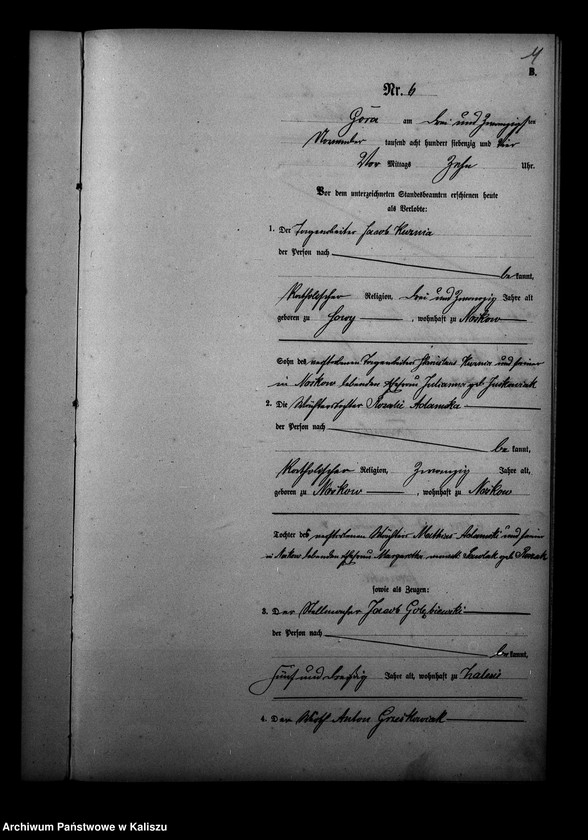 4
B.
Nr. 6
Góra am drei und zwanzigsten
November tausend acht hundert siebenzig und vier
Vor Mittags Zehn Uhr.
Vor dem unterzeichneten Standesbeamten erschienen heute
als Verlobte:
1. Der Jacob Kurnia
der Person nach
bekannt,
Katholischer Religion, drei und zwanzig Jahre alt
geboren zu , wohnhaft zu Noskow
Sohn des verstorbenen Stanislaus Kurnia und seiner
in Noskow lebenden Ehefrau Julianna geb.
2. Die Rosalie Adamska
der Person nach
bekannt,
Katholischer Religion, Zwanzig Jahre alt,
geboren zu Noskow , wohnhaft zu Noskow
Tochter des verstorbenen Mathias Adamski und seiner
in lebenden Ehefrau Margaretha geb.
sowie als Zeugen:
3. Der Stellmacher Jacob Golębiewski
der Person nach
bekannt,
Fünf und dreißig Jahre alt, wohnhaft zu Zalesie
4. Der Wirth Anton Grześkowiak
Archiwum Państwowe w Kaliszu